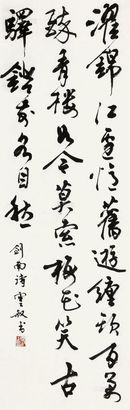 濯錦江邊憶舊遊纏頭百萬
醉青樓如今莫索梅花笑古
驛鐙前各自愁
劍南詩